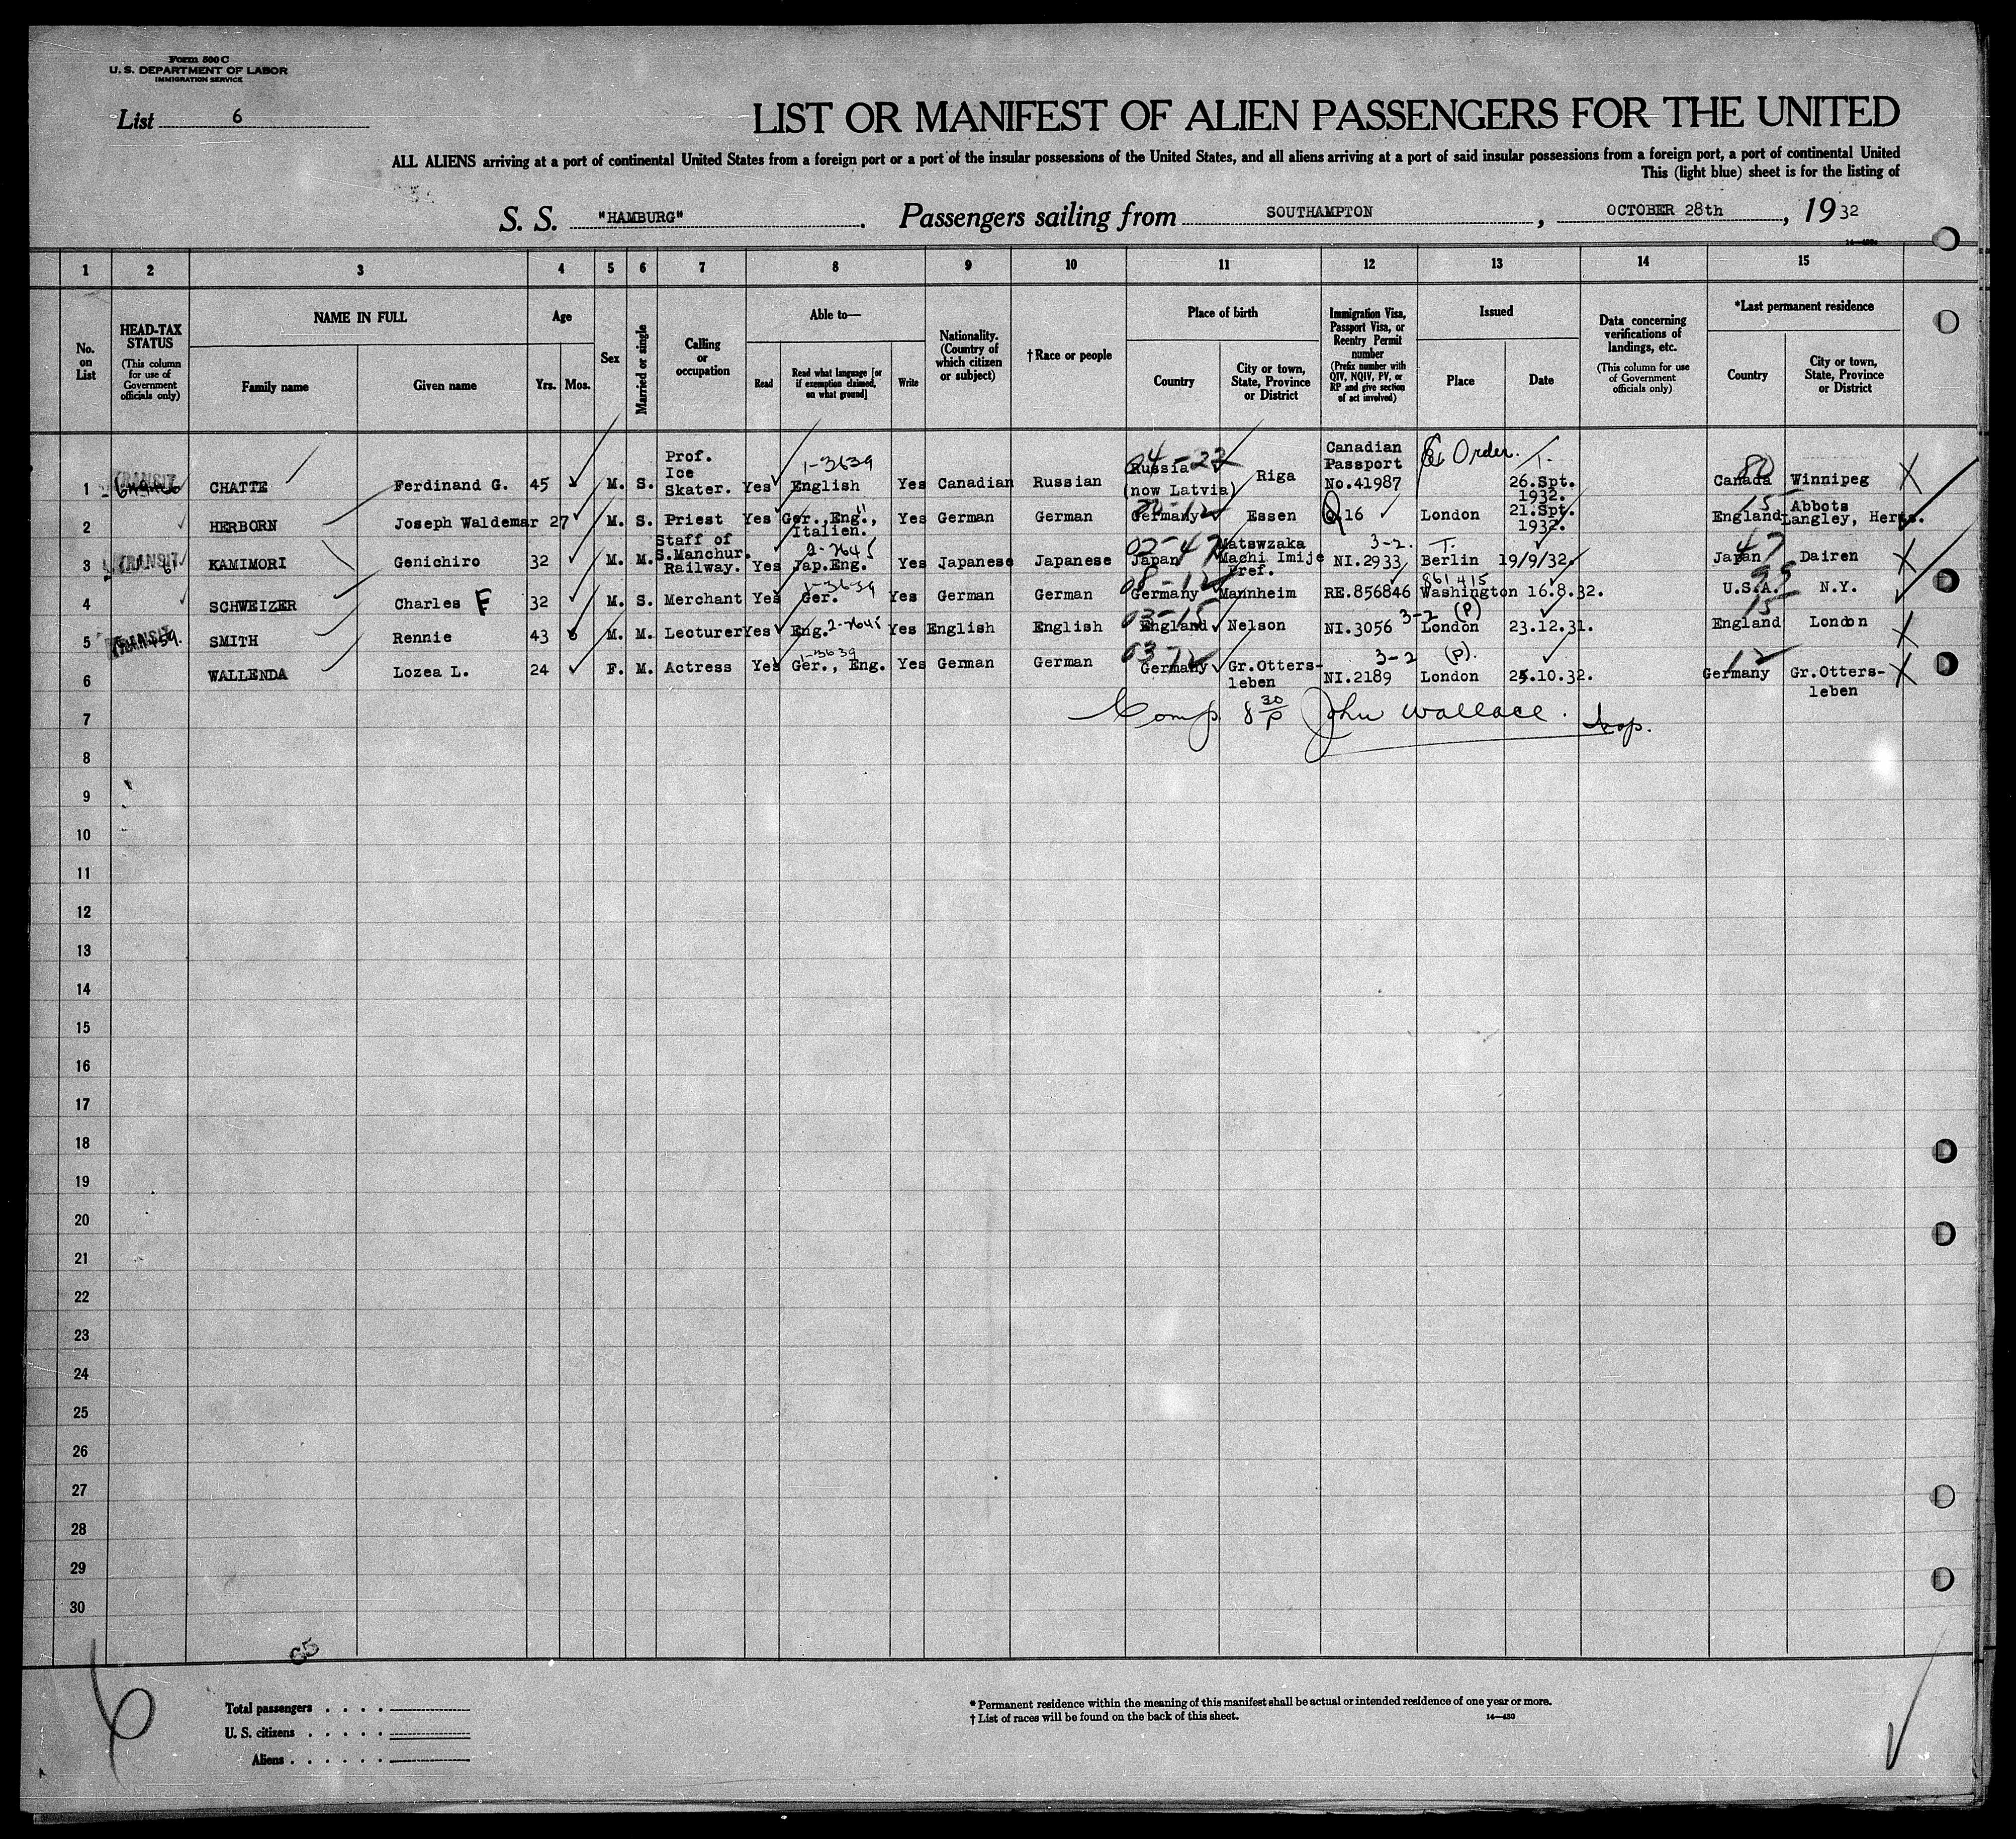 Form 500 C
U. S. DEPARTMENT OF LABOR
IMMIGRATION SERVICE
List 6
LIST OR MANIFEST OF ALIEN PASSENGERS FOR THE UNITED
ALL ALIENS arriving at a port of continental United States from a foreign port or a port of the insular possessions of the United States, and all aliens arriving at a port of said insular possessions from a foreign port, a port of continental United
This (light blue) sheet is for the listing of
S. S. "HAMBURG". Passengers sailing from SOUTHAMPTON, OCTOBER 28th, 1932
1 2 3 4 5 6 7 8 9 10 11 12 13 14 15
No. on List
HEAD-TAX STATUS
(This column for use of Government officials only)
NAME IN FULL
Family name
Given name
Age
Yrs. Mos.
Sex
Married or single
Calling or occupation
Able to—
Read
Read what language [or if exemption claimed, on what ground]
Write
Nationality. (Country of which citizen or subject)
†Race or people
Place of birth
Country
City or town, State, Province or District
Immigration Visa, Passport Visa, or Reentry Permit number
(Prefix number with QIV, NQIV, PV, or RP and give section of act involved)
Issued
Place
Date
Data concerning verifications of landings, etc.
(This column for use of Government officials only)
*Last permanent residence
Country
City or town, State, Province or District
1 TRANSIT CHATTE Ferdinand G. 45 M. S. Prof. Ice Skater. Yes 1-3639 English Yes Canadian Russian Russia (now Latvia) Riga Canadian Passport No.41987 Order. T. 26.Spt. 1932. 80 Canada Winnipeg X
2 HERBORN Joseph Waldemar 27 M. S. Priest Yes Ger.,Eng., Italien. Yes German German Germany Essen Q.16 London 21.Spt. 1932. 15 England Abbots Langley, Herts.
3 TRANSIT KAMIMORI Genichiro 32 M. M. Staff of S.Manchur. Railway. Yes 2-7645 Jap.Eng. Yes Japanese Japanese Japan Matswzaka Machi Imije Pref. 3-2. NI.2933 T. Berlin 19/9/32. 47 Japan Dairen X
4 SCHWEIZER Charles F 32 M. S. Merchant Yes 1-3639 Ger. Yes German German 08-12 Germany Mannheim RE.856846 861415 Washington 16.8.32. 99 U.S.A. N.Y.
5 TRANSIT SMITH Rennie 43 M. M. Lecturer Yes Eng. 2-7645 Yes English English 03-15 England Nelson NI.3056 3-2 (P) London 23.12.31. 15 England London X
6 WALLENDA Lozea L. 24 F. M. Actress Yes 1-3639 Ger., Eng. Yes German German 03-12 Germany Gr.Otters-leben 3-2 (P). NI.2189 London 25.10.32. 12 Germany Gr.Otters-leben X
7 Comp 8 30/P John Wallace. Insp.
8
9
10
11
12
13
14
15
16
17
18
19
20
21
22
23
24
25
26
27
28
29
30
Total passengers . . . .
U. S. citizens . . . . .
Aliens . . . . . .
* Permanent residence within the meaning of this manifest shall be actual or intended residence of one year or more.
† List of races will be found on the back of this sheet.
14—430